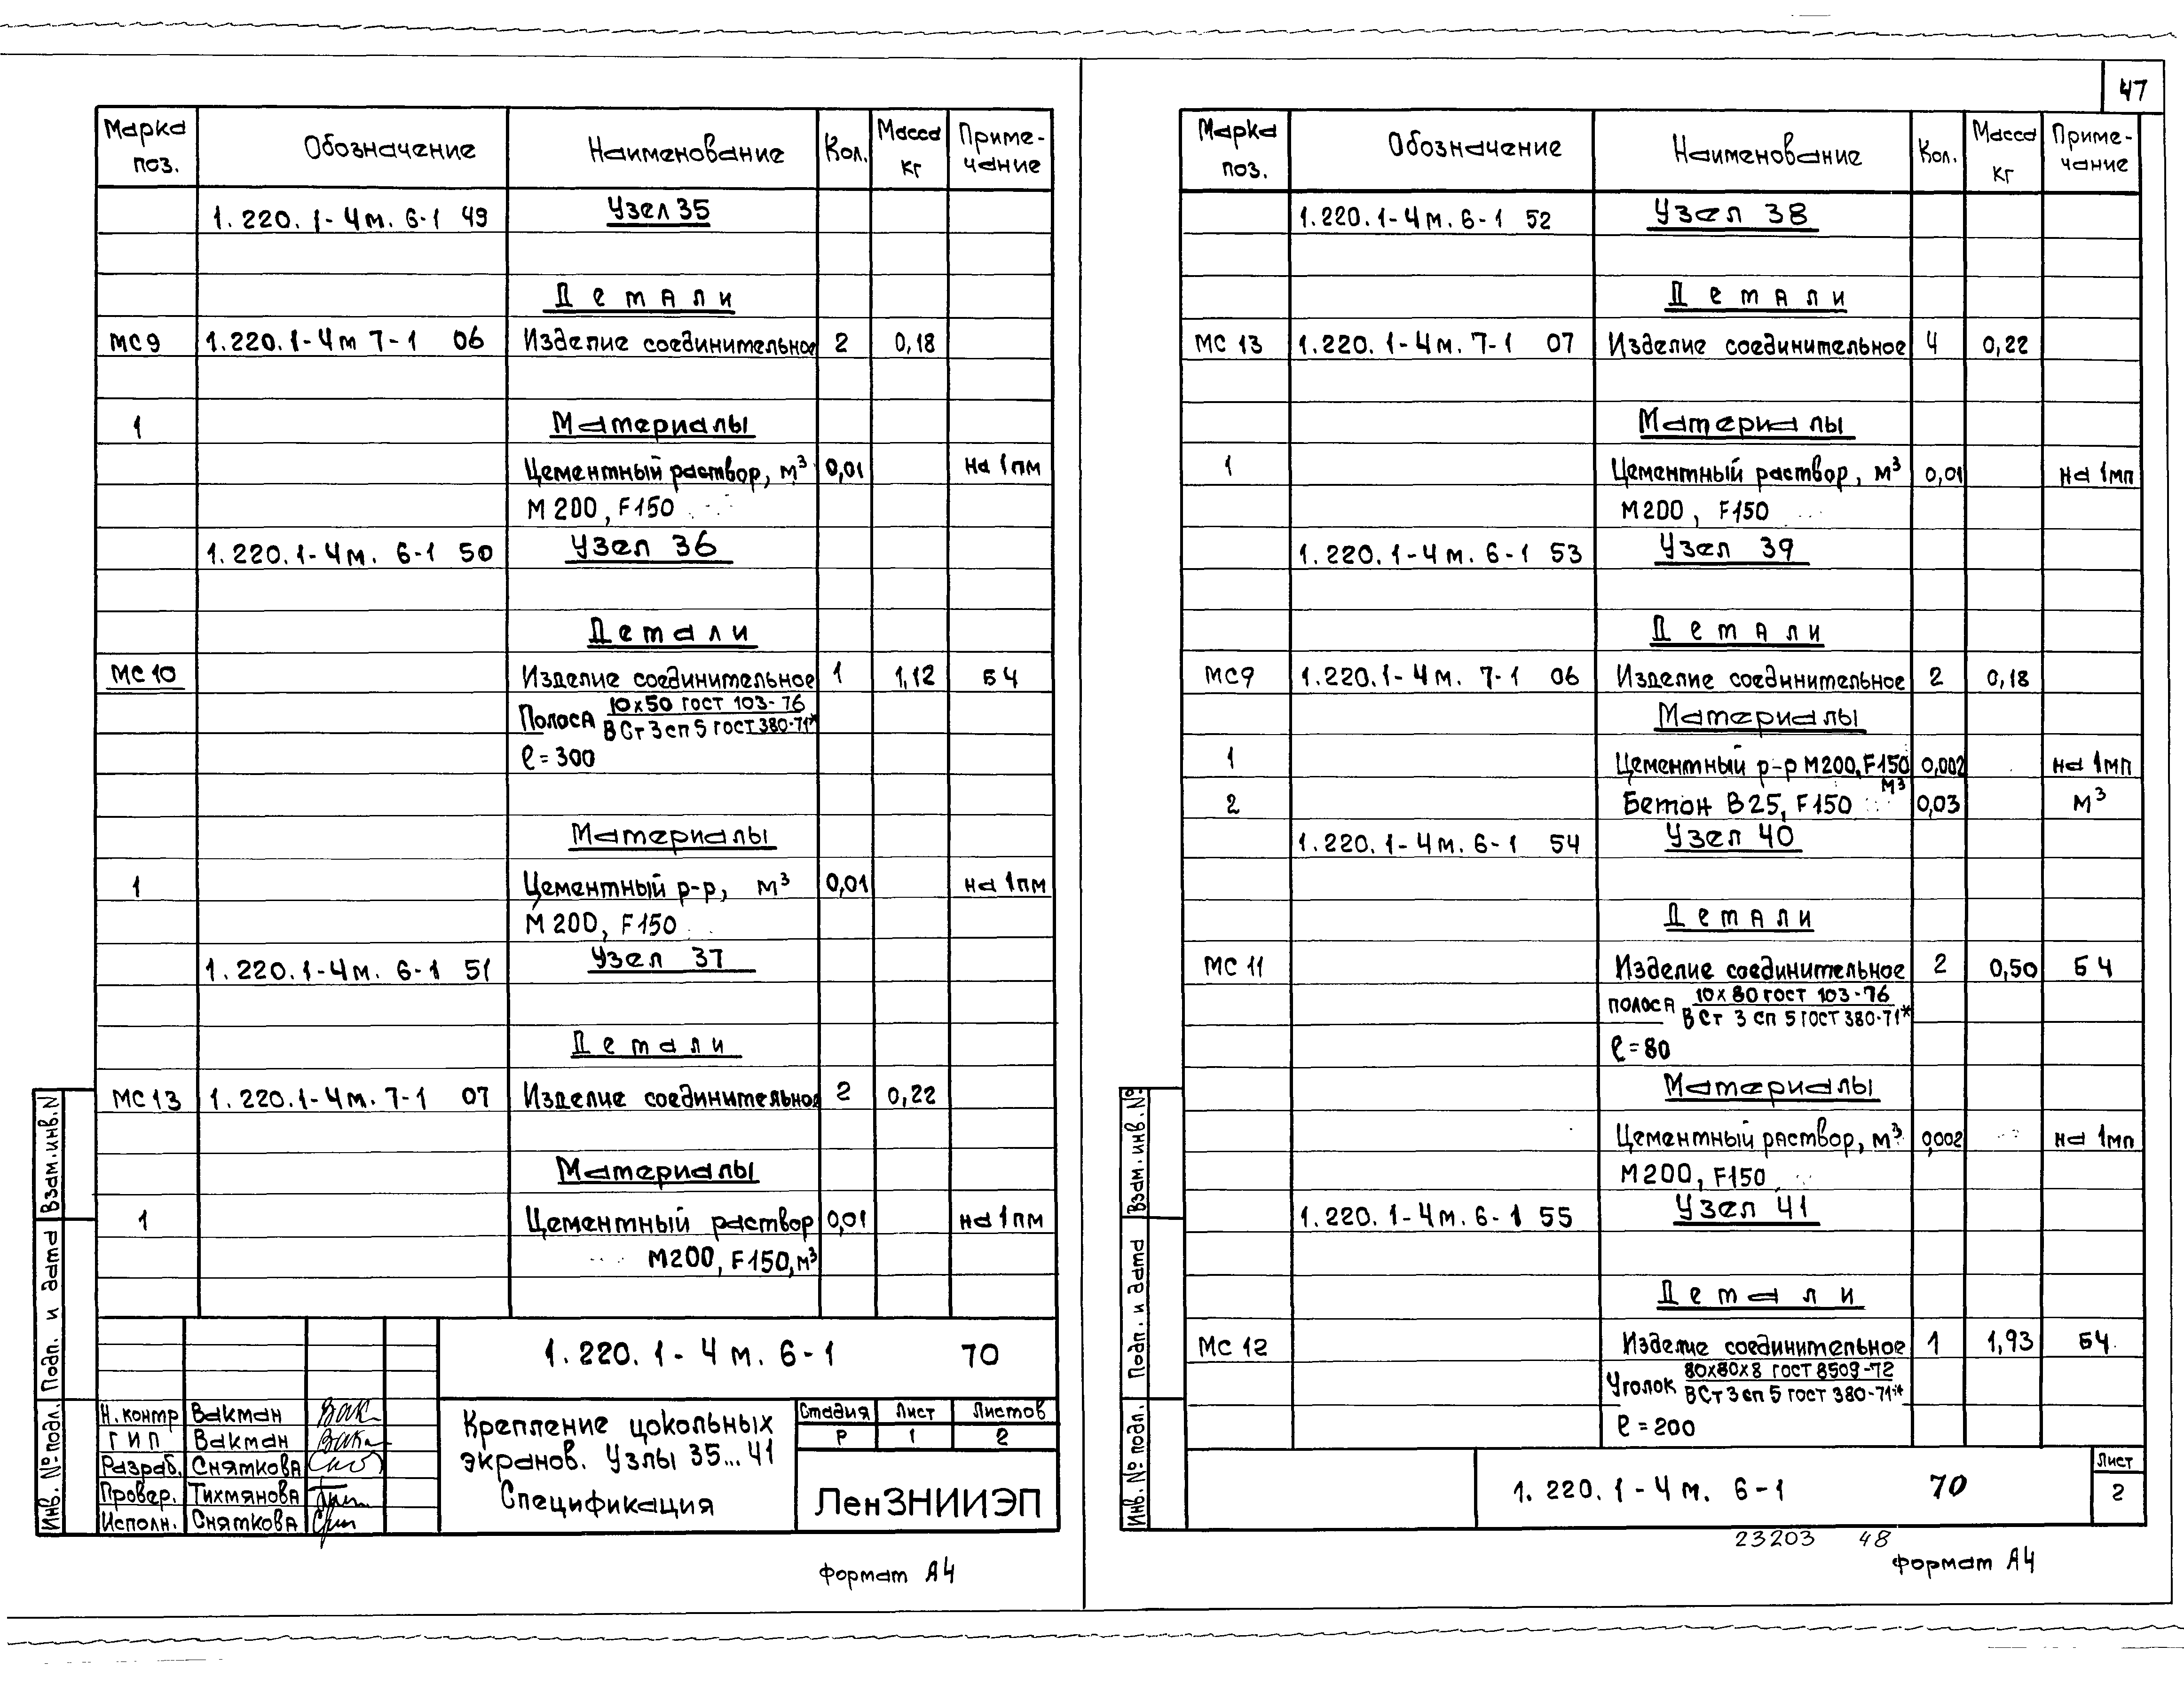 47
Марка поз. Обозначение Наименование Кол. Масса кг Приме-чание
1.220.1-4м.6-1 49 Узел 35
Детали
МС9 1.220.1-4м 7-1 06 Изделие соединительное 2 0,18
1 Материалы
Цементный раствор, м³ 0,01 на 1пм
М200, F150
1.220.1-4м. 6-1 50 Узел 36
Детали
МС10 Изделие соединительное 1 1,12 БЧ
Полоса 10х50 ГОСТ 103-76
ВСт3сп5 ГОСТ 380-71*
ℓ=300
Материалы
1 Цементный р-р, м³ 0,01 на 1пм
М200, F150
1.220.1-4м. 6-1 51 Узел 37
Детали
МС13 1.220.1-4м.7-1 07 Изделие соединительное 2 0,22
Материалы
1 Цементный раствор 0,01 на 1пм
М200, F150, м³
1.220.1-4м.6-1 70
Н.контр Вакман
ГИП Вакман
Разраб. Сняткова
Провер. Тихмянова
Исполн. Сняткова
Крепление цокольных
экранов. Узлы 35...41
Спецификация
Стадия Лист Листов
Р 1 2
ЛенЗНИИЭП
Взам.инв.N
Подп. и дата
Инв. № подл.
Формат А4
Марка поз. Обозначение Наименование Кол. Масса кг Приме-чание
1.220.1-4м.6-1 52 Узел 38
Детали
МС 13 1.220.1-4м.7-1 07 Изделие соединительное 4 0,22
Материалы
1 Цементный раствор, м³ 0,01 на 1мп
М200, F150
1.220.1-4м.6-1 53 Узел 39
Детали
МС9 1.220.1-4м. 7-1 06 Изделие соединительное 2 0,18
Материалы
1 Цементный р-р М200, F150 м³ 0,002 на 1мп
2 Бетон В25, F150 0,03 м³
1.220.1-4м.6-1 54 Узел 40
Детали
МС 11 Изделие соединительное 2 0,50 БЧ
полоса 10х80 ГОСТ 103-76
ВСт 3 сп 5 ГОСТ 380-71*
ℓ=80
Материалы
Цементный раствор, м³ 0,002 на 1мп
М200, F150
1.220.1-4м.6-1 55 Узел 41
Детали
МС 12 Изделие соединительное 1 1,93 БЧ.
Уголок 80х80х8 ГОСТ 8509-72
ВСт3сп5 ГОСТ 380-71*
ℓ=200
1.220.1-4м. 6-1 70
Лист
2
Взам.инв.№
Подп. и дата
Инв. № подл.
23203 48
Формат А4